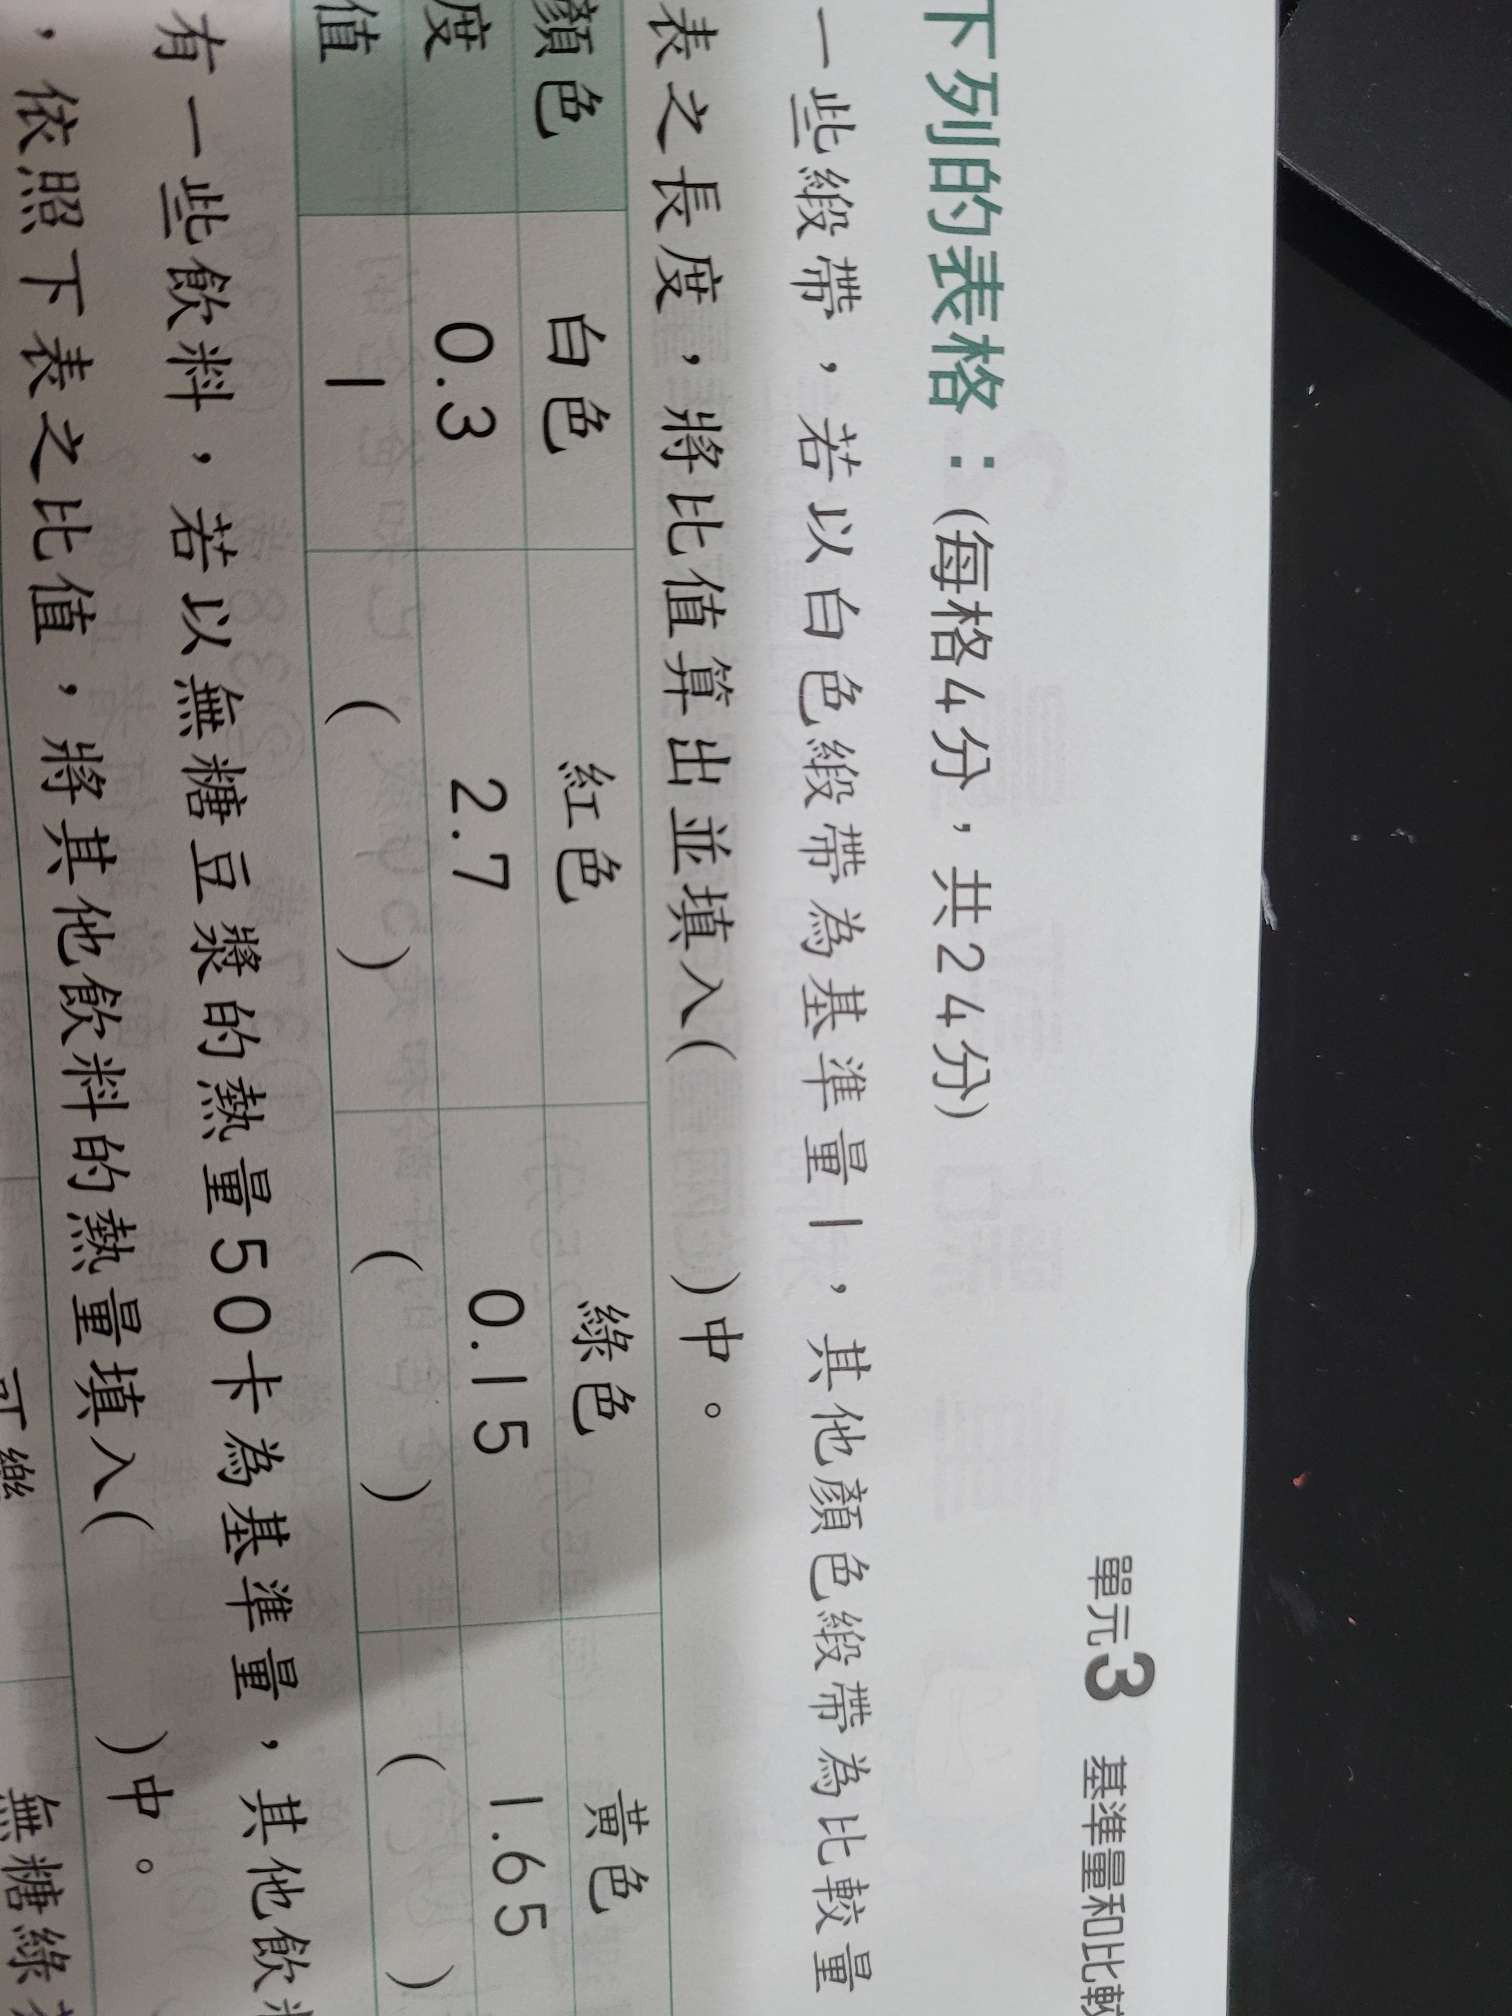 單元3 基準量和比較
下列的表格：(每格4分，共24分)
一些緞帶，若以白色緞帶為基準量1，其他顏色緞帶為比較量
表之長度，將比值算出並填入( )中。
顏色 白色 紅色 綠色 黃色
度 0.3 2.7 0.15 1.65
值 1 ( ) ( ) ( )
有一些飲料，若以無糖豆漿的熱量50卡為基準量，其他飲
，依照下表之比值，將其他飲料的熱量填入( )中。
可樂 無糖綠